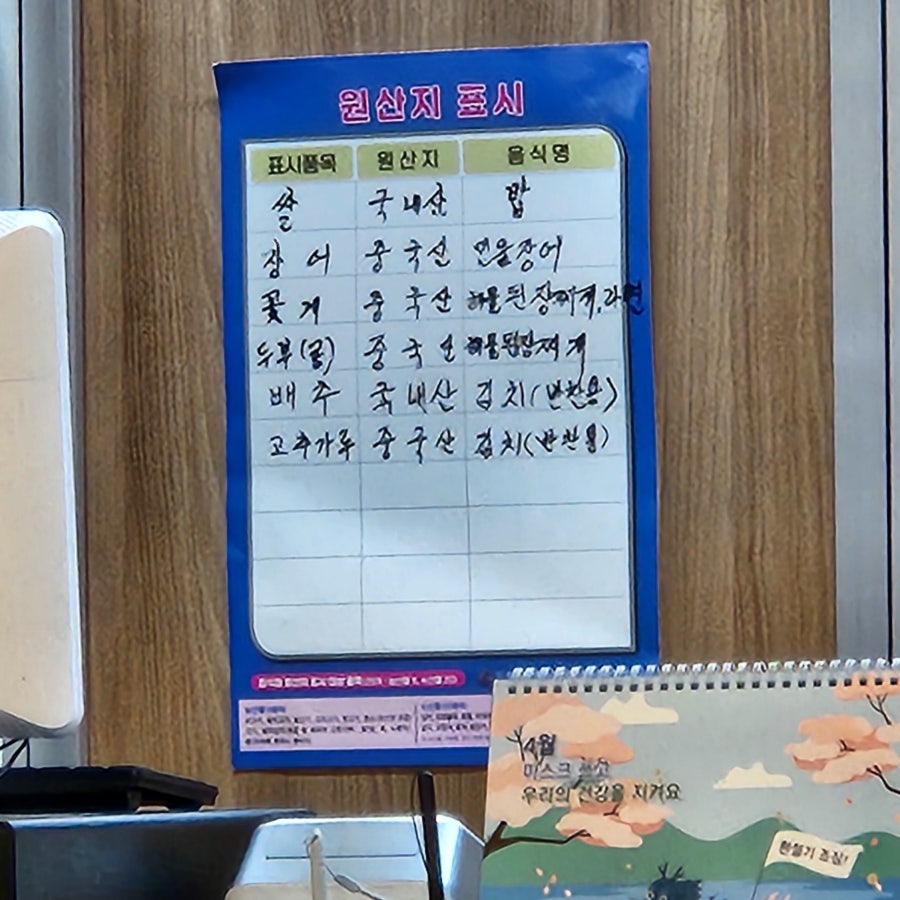 원산지 표시
표시품목 원산지 음식명
쌀 국내산 밥
장어 중국산 민물장어
꽃게 중국산 해물된장찌개,라면
두부(콩) 중국산 해물된장찌개
배추 국내산 김치(반찬용)
고추가루 중국산 김치(반찬용)
4월
마스크 쓰고
우리의 건강을 지켜요
환절기 조심!